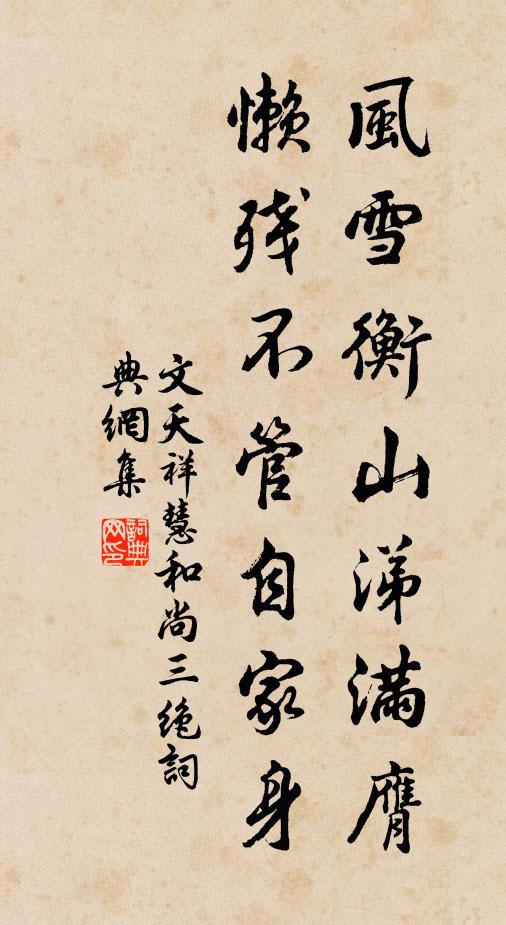 風雪衡山涕満膺
懶残不管自家身
文天祥慧和尚三绝詞
典網集
詞典网印